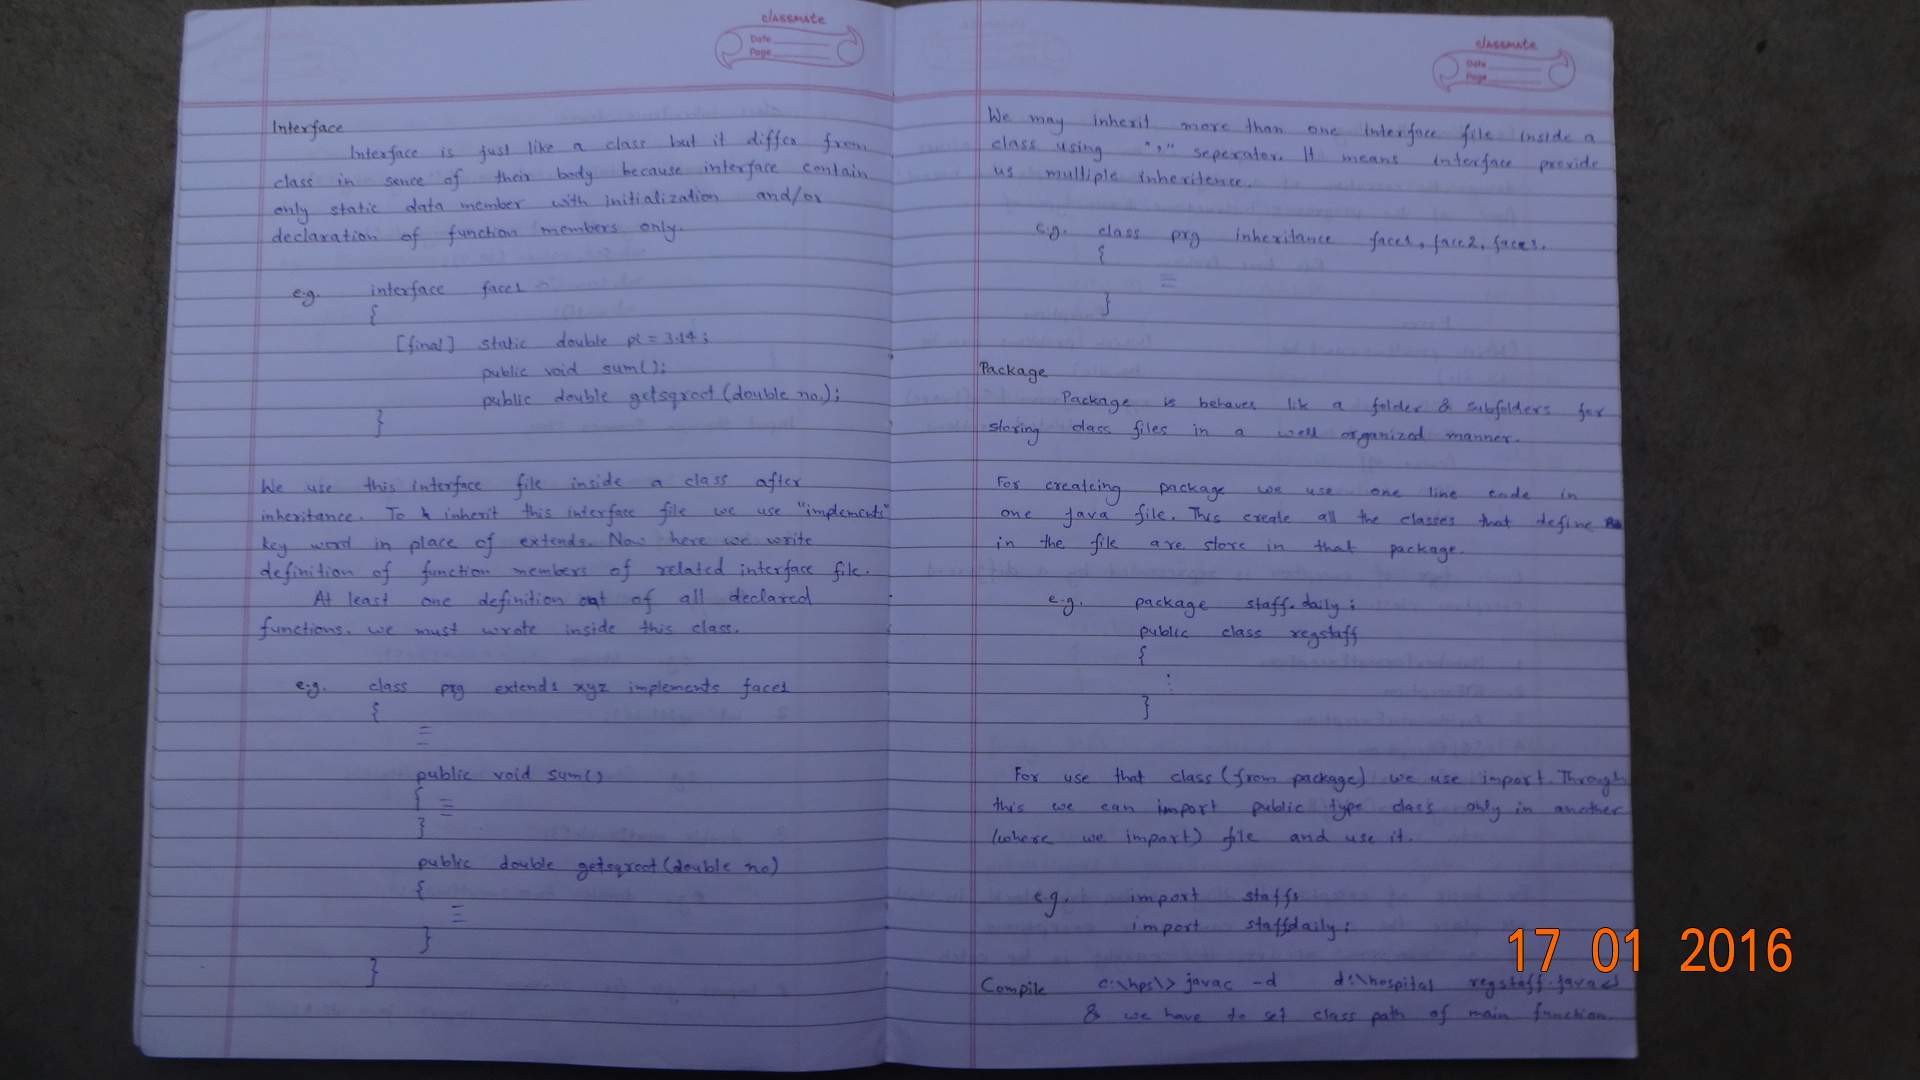 classmate
Date
Page
Interface
Interface is just like a class but it differ from
class in sence of their body because interface contain
only static data member with initialization and/or
declaration of function members only.
e.g. interface face1
{
[final] static double pi = 3.14;
public void sum();
public double getsqroot(double no.);
}
We use this interface file inside a class after
inheritance. To inherit this interface file we use "implements"
key word in place of extends. Now here we write
definition of function members of related interface file.
At least one definition out of all declared
functions. we must wrote inside this class.
e.g. class prg extends xyz implements face1
{
public void sum()
{
}
public double getsqroot(double no)
{
}
}
classmate
Date
Page
We may inherit more than one interface file inside a
class using "," seperator. It means interface provide
us multiple inheritence.
e.g. class prg inheritance face1, face2, face3.
{
}
Package
Package is behaves lik a folder & subfolders for
storing class files in a well organized manner.
For createing package we use one line code in
one java file. This create all the classes that define
in the file are store in that package.
e.g. package staff.daily;
public class regstaff
{
:
}
For use that class (from package) we use import. Through
this we can import public type class only in another
(where we import) file and use it.
e.g. import staff;
import staffdaily;
Compile c:\hps\> javac -d d:\hospital regstaff.java
& we have to set class path of main function.
17 01 2016